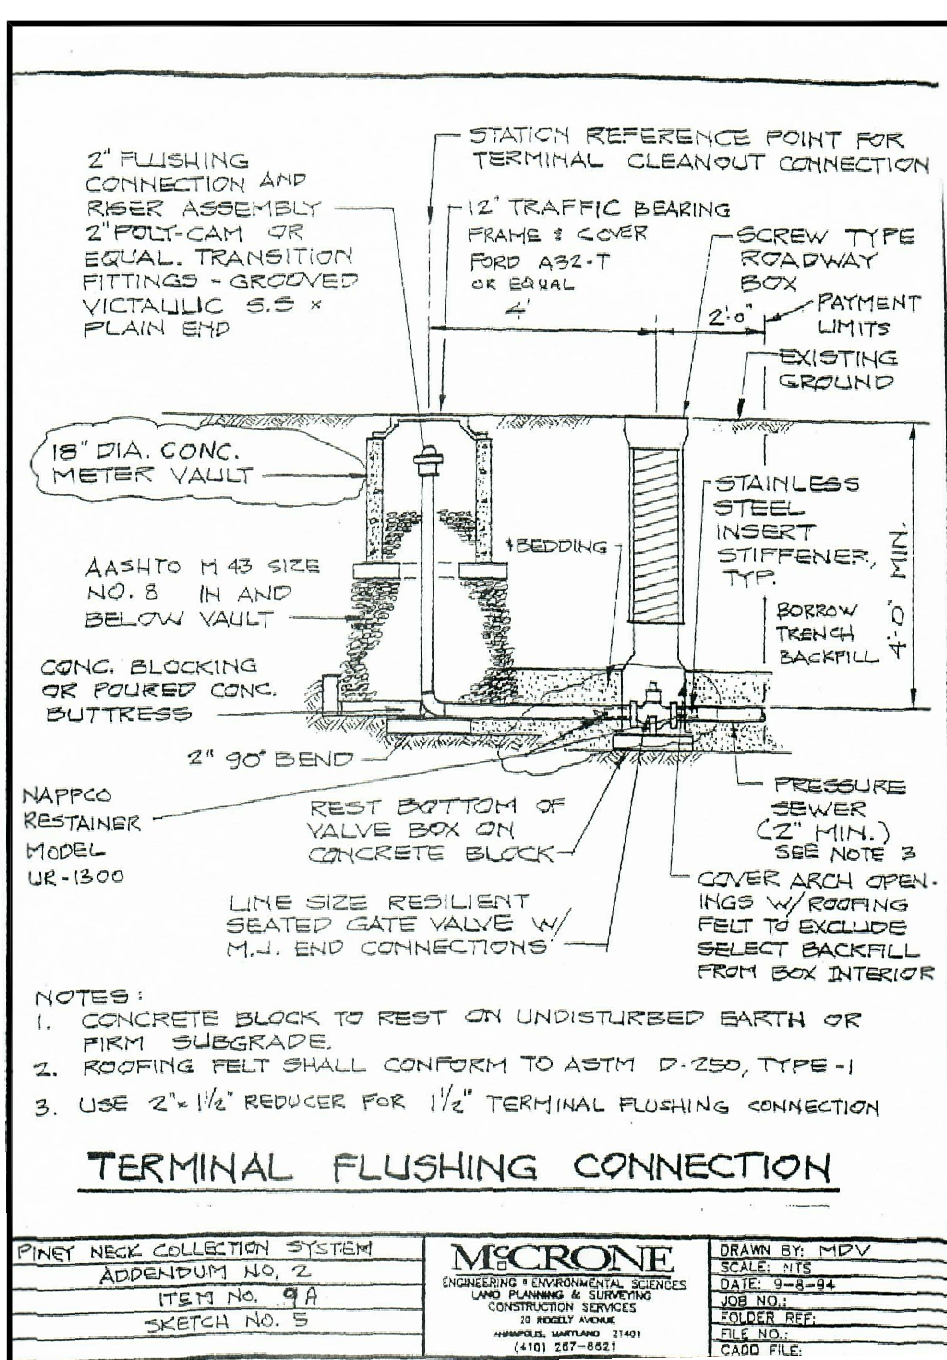 STATION REFERENCE POINT FOR
TERMINAL CLEANOUT CONNECTION
2" FLUSHING
CONNECTION AND
RISER ASSEMBLY
2" POLY-CAM OR
EQUAL. TRANSITION
FITTINGS - GROOVED
VICTAULIC S.S x
PLAIN END
12" TRAFFIC BEARING
FRAME & COVER
FORD A32-T
OR EQUAL
4'
SCREW TYPE
ROADWAY
BOX
2'-0"
PAYMENT
LIMITS
EXISTING
GROUND
18" DIA. CONC.
METER VAULT
STAINLESS
STEEL
INSERT
STIFFENER,
TYP.
BEDDING
4'-0" MIN.
AASHTO M 43 SIZE
NO. 8 IN AND
BELOW VAULT
BORROW
TRENCH
BACKFILL
CONC. BLOCKING
OR POURED CONC.
BUTTRESS
2" 90° BEND
NAPPCO
RESTAINER
MODEL
UR-1300
REST BOTTOM OF
VALVE BOX ON
CONCRETE BLOCK
PRESSURE
SEWER
(2" MIN.)
SEE NOTE 3
LINE SIZE RESILIENT
SEATED GATE VALVE W/
M.J. END CONNECTIONS
COVER ARCH OPEN-
INGS W/ROOFING
FELT TO EXCLUDE
SELECT BACKFILL
FROM BOX INTERIOR
NOTES:
1. CONCRETE BLOCK TO REST ON UNDISTURBED EARTH OR
FIRM SUBGRADE.
2. ROOFING FELT SHALL CONFORM TO ASTM D-250, TYPE-I
3. USE 2"x1½" REDUCER FOR 1½" TERMINAL FLUSHING CONNECTION
TERMINAL FLUSHING CONNECTION
PINEY NECK COLLECTION SYSTEM
ADDENDUM NO. 2
ITEM NO. 9A
SKETCH NO. 5
McCRONE
ENGINEERING • ENVIRONMENTAL SCIENCES
LAND PLANNING & SURVEYING
CONSTRUCTION SERVICES
20 RIDGELY AVENUE
ANNAPOLIS, MARYLAND 21401
(410) 267-8621
DRAWN BY: MDV
SCALE: NTS
DATE: 9-8-94
JOB NO.:
FOLDER REF:
FILE NO.:
CADD FILE: